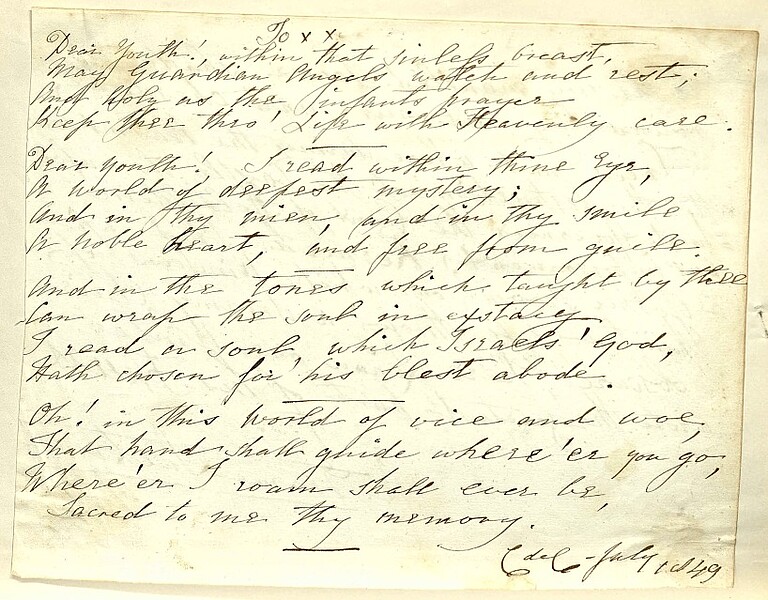 To x x.
Dear Youth!, within that sinless breast,
May Guardian Angels watch and rest;
And holy as the infants prayer
Keep thee thro' Life with Heavenly care.
Dear Youth! I read within thine Eye,
A world of deepest mystery;
And in thy mien, and in thy smile
A noble heart, and free from guile.
And in the tones which taught by thee
Can wrap the soul in extacy
I read a soul which Israels' God,
Hath chosen for his blest abode.
Oh! in this world of vice and woe,
That hand shall guide where'er you go,
Where'er I roam shall ever be,
Sacred to me thy memory.
C de C - July 1849